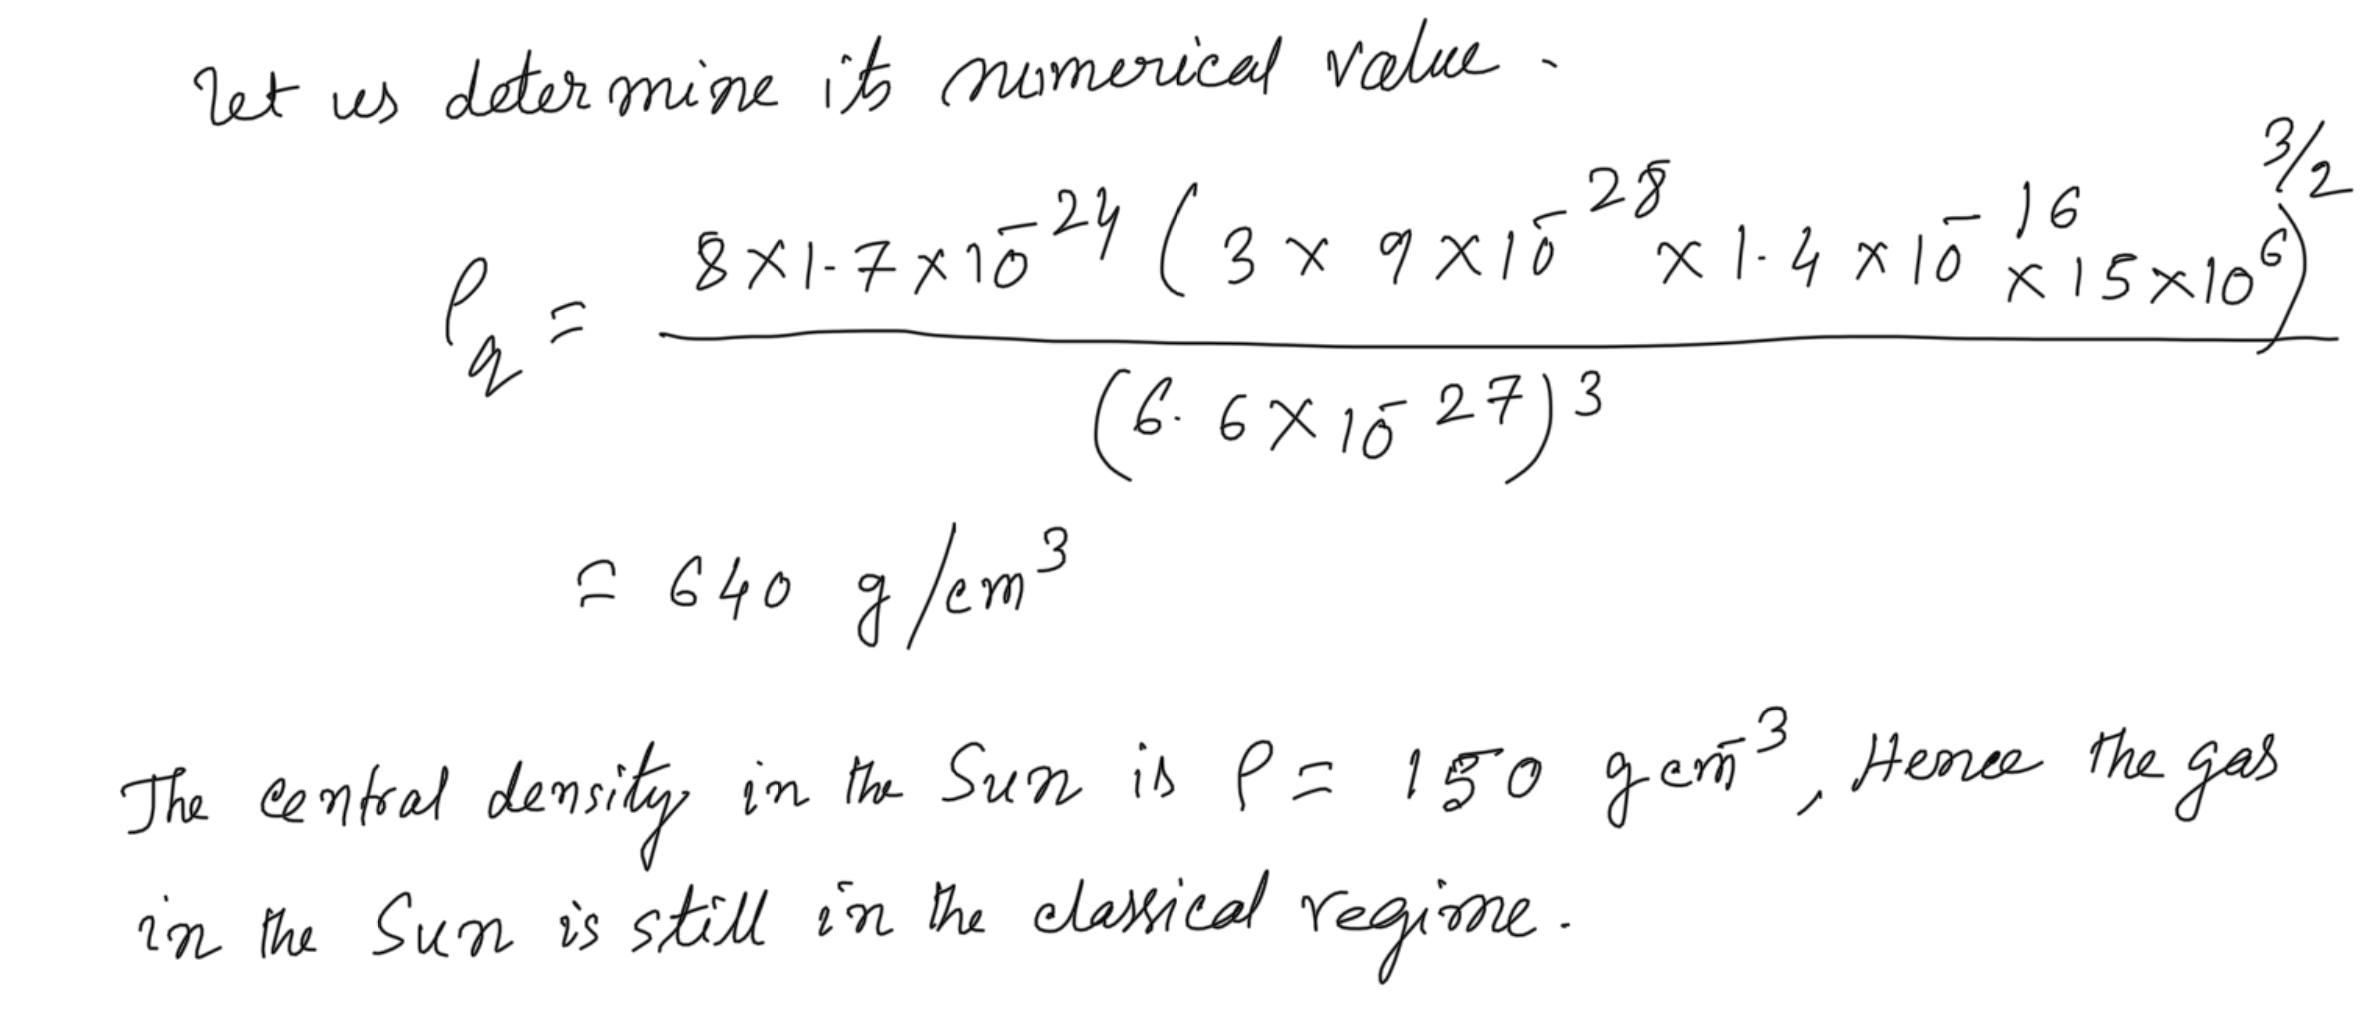 Let us determine its numerical value.
ρ_q = 8×1.7×10^-24 (3 × 9×10^-28 × 1.4 ×10^-16 ×15×10^6)^3/2 / (6.6×10^-27)^3
= 640 g/cm^3
The central density in the Sun is ρ= 150 gcm^-3, Hence the gas
in the Sun is still in the classical regime.